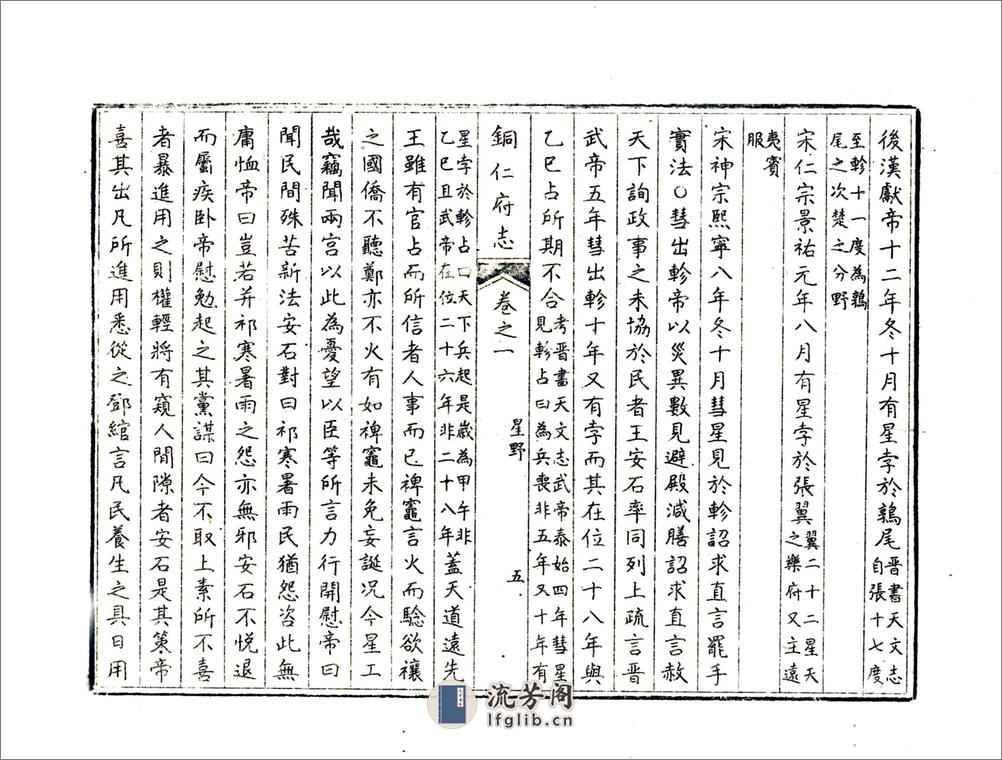 後漢獻帝十二年冬十月有星孛於鶉尾晉書天文志自張十七度
至軫十一度為鶉尾之次楚之分野
宋仁宗景祐元年八月有星孛於張翼翼二十二星天之樂府又主遠
夷賓服
宋神宗熙寧八年冬十月彗星見於軫詔求直言罷手
實法○彗出軫帝以災異數見避殿減膳詔求直言赦
天下詢政事之未協於民者王安石率同列上疏言晉
武帝五年彗出軫十年又有孛而其在位二十八年與
乙巳占所期不合考晉書天文志武帝泰始四年彗星見軫占曰為兵喪非五年又十年有
銅仁府志 卷之一 星野 五
星孛於軫占曰天下兵起是歲為甲午非乙巳且武帝在位二十六年非二十八年蓋天道遠先
王雖有官占而所信者人事而已裨竈言火而驗欲禳
之國僑不聽鄭亦不火有如裨竈未免妄誕况今星工
哉竊聞兩宮以此為憂望以臣等所言力行開慰帝曰
聞民間殊苦新法安石對曰祁寒暑雨民猶怨咨此無
庸恤帝曰豈若并祁寒暑雨之怨亦無邪安石不悦退
而屬疾卧帝慰勉起之其黨謀曰今不取上素所不喜
者暴進用之則權輕將有窺人間隙者安石是其策帝
喜其出凡所進用悉從之鄧綰言凡民養生之具日用
流芳阁
lfglib.cn